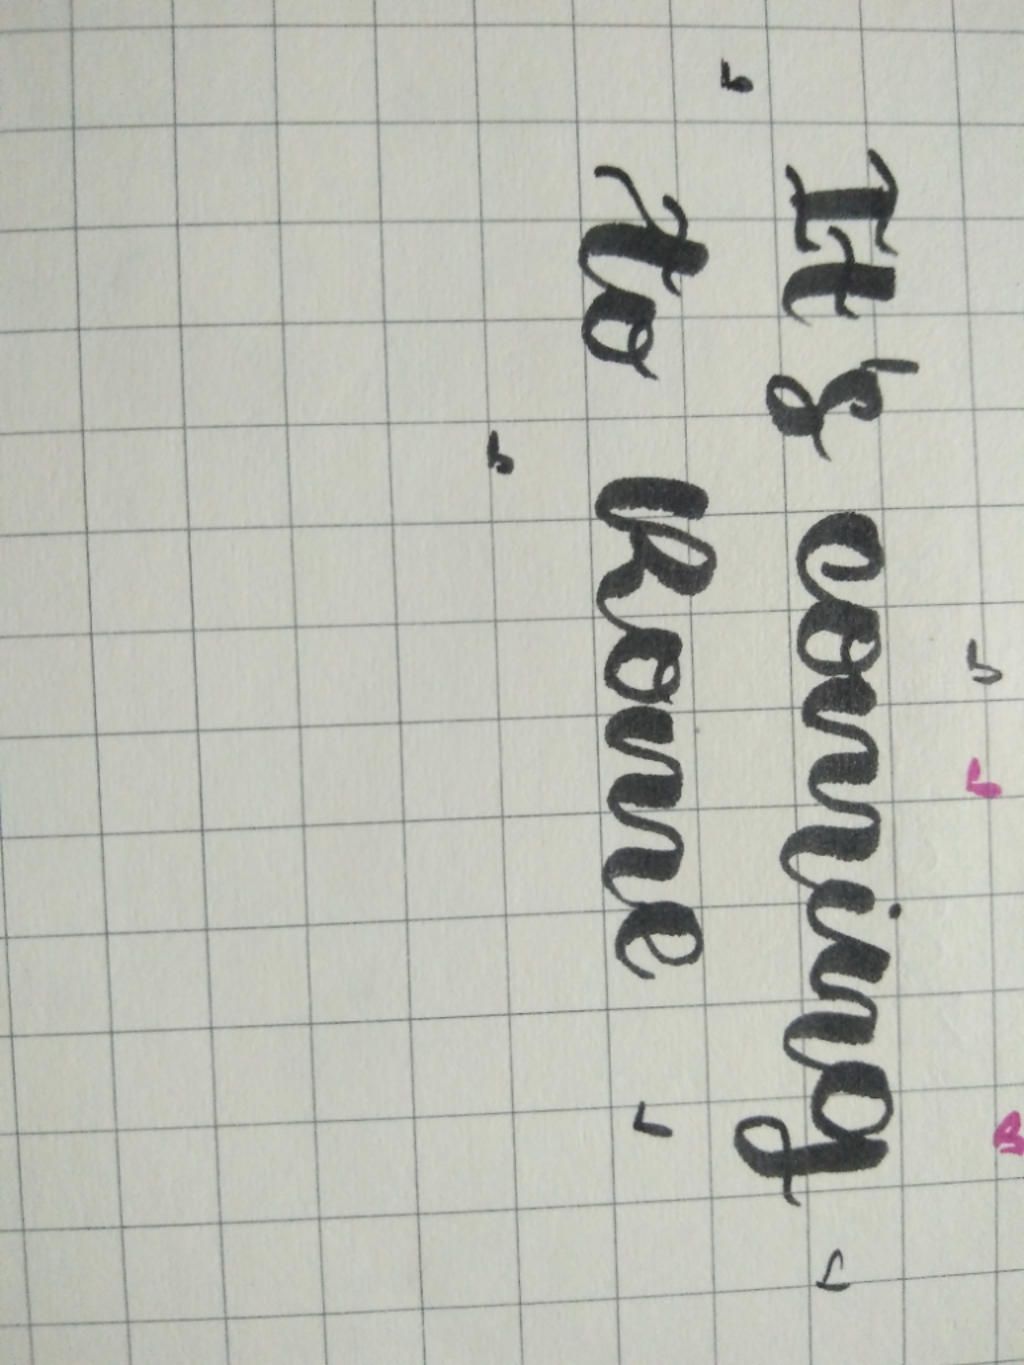 It's coming
to Rome